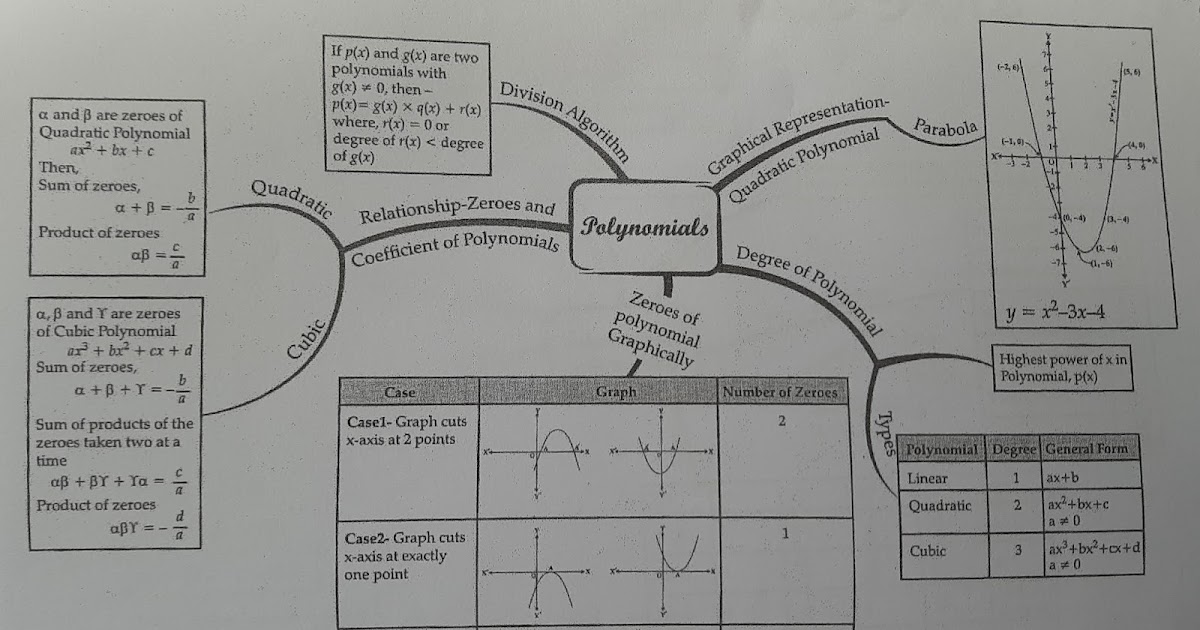 If p(x) and g(x) are two
polynomials with
g(x) ≠ 0, then –
p(x)= g(x) × q(x) + r(x)
where, r(x) = 0 or
degree of r(x) < degree
of g(x)
Division Algorithm
Graphical Representation-
Quadratic Polynomial
Parabola
Y
7
6
5
4
3
2
1
(-2, 6)
(5, 6)
y=x²–3x–4
(-1, 0)
(4, 0)
X'
-3 -2
0
1 2 3
5 6
X
-1
-2
-4
(0, -4)
(3, -4)
-5
-6
(2, -6)
-7
(1, -6)
Y'
y = x²–3x–4
α and β are zeroes of
Quadratic Polynomial
ax² + bx + c
Then,
Sum of zeroes,
α + β = –b/a
Product of zeroes
αβ = c/a
Quadratic
Relationship-Zeroes and
Coefficient of Polynomials
Polynomials
Cubic
α, β and ϒ are zeroes
of Cubic Polynomial
ax³ + bx² + cx + d
Sum of zeroes,
α + β + ϒ = –b/a
Sum of products of the
zeroes taken two at a
time
αβ + βϒ + ϒα = c/a
Product of zeroes
αβϒ = – d/a
Zeroes of
polynomial
Graphically
Degree of Polynomial
Highest power of x in
Polynomial, p(x)
Types
Polynomial Degree General Form
Linear 1 ax+b
Quadratic 2 ax²+bx+c
a ≠ 0
Cubic 3 ax³+bx²+cx+d
a ≠ 0
Case Graph Number of Zeroes
Case1- Graph cuts
x-axis at 2 points
2
Case2- Graph cuts
x-axis at exactly
one point
1